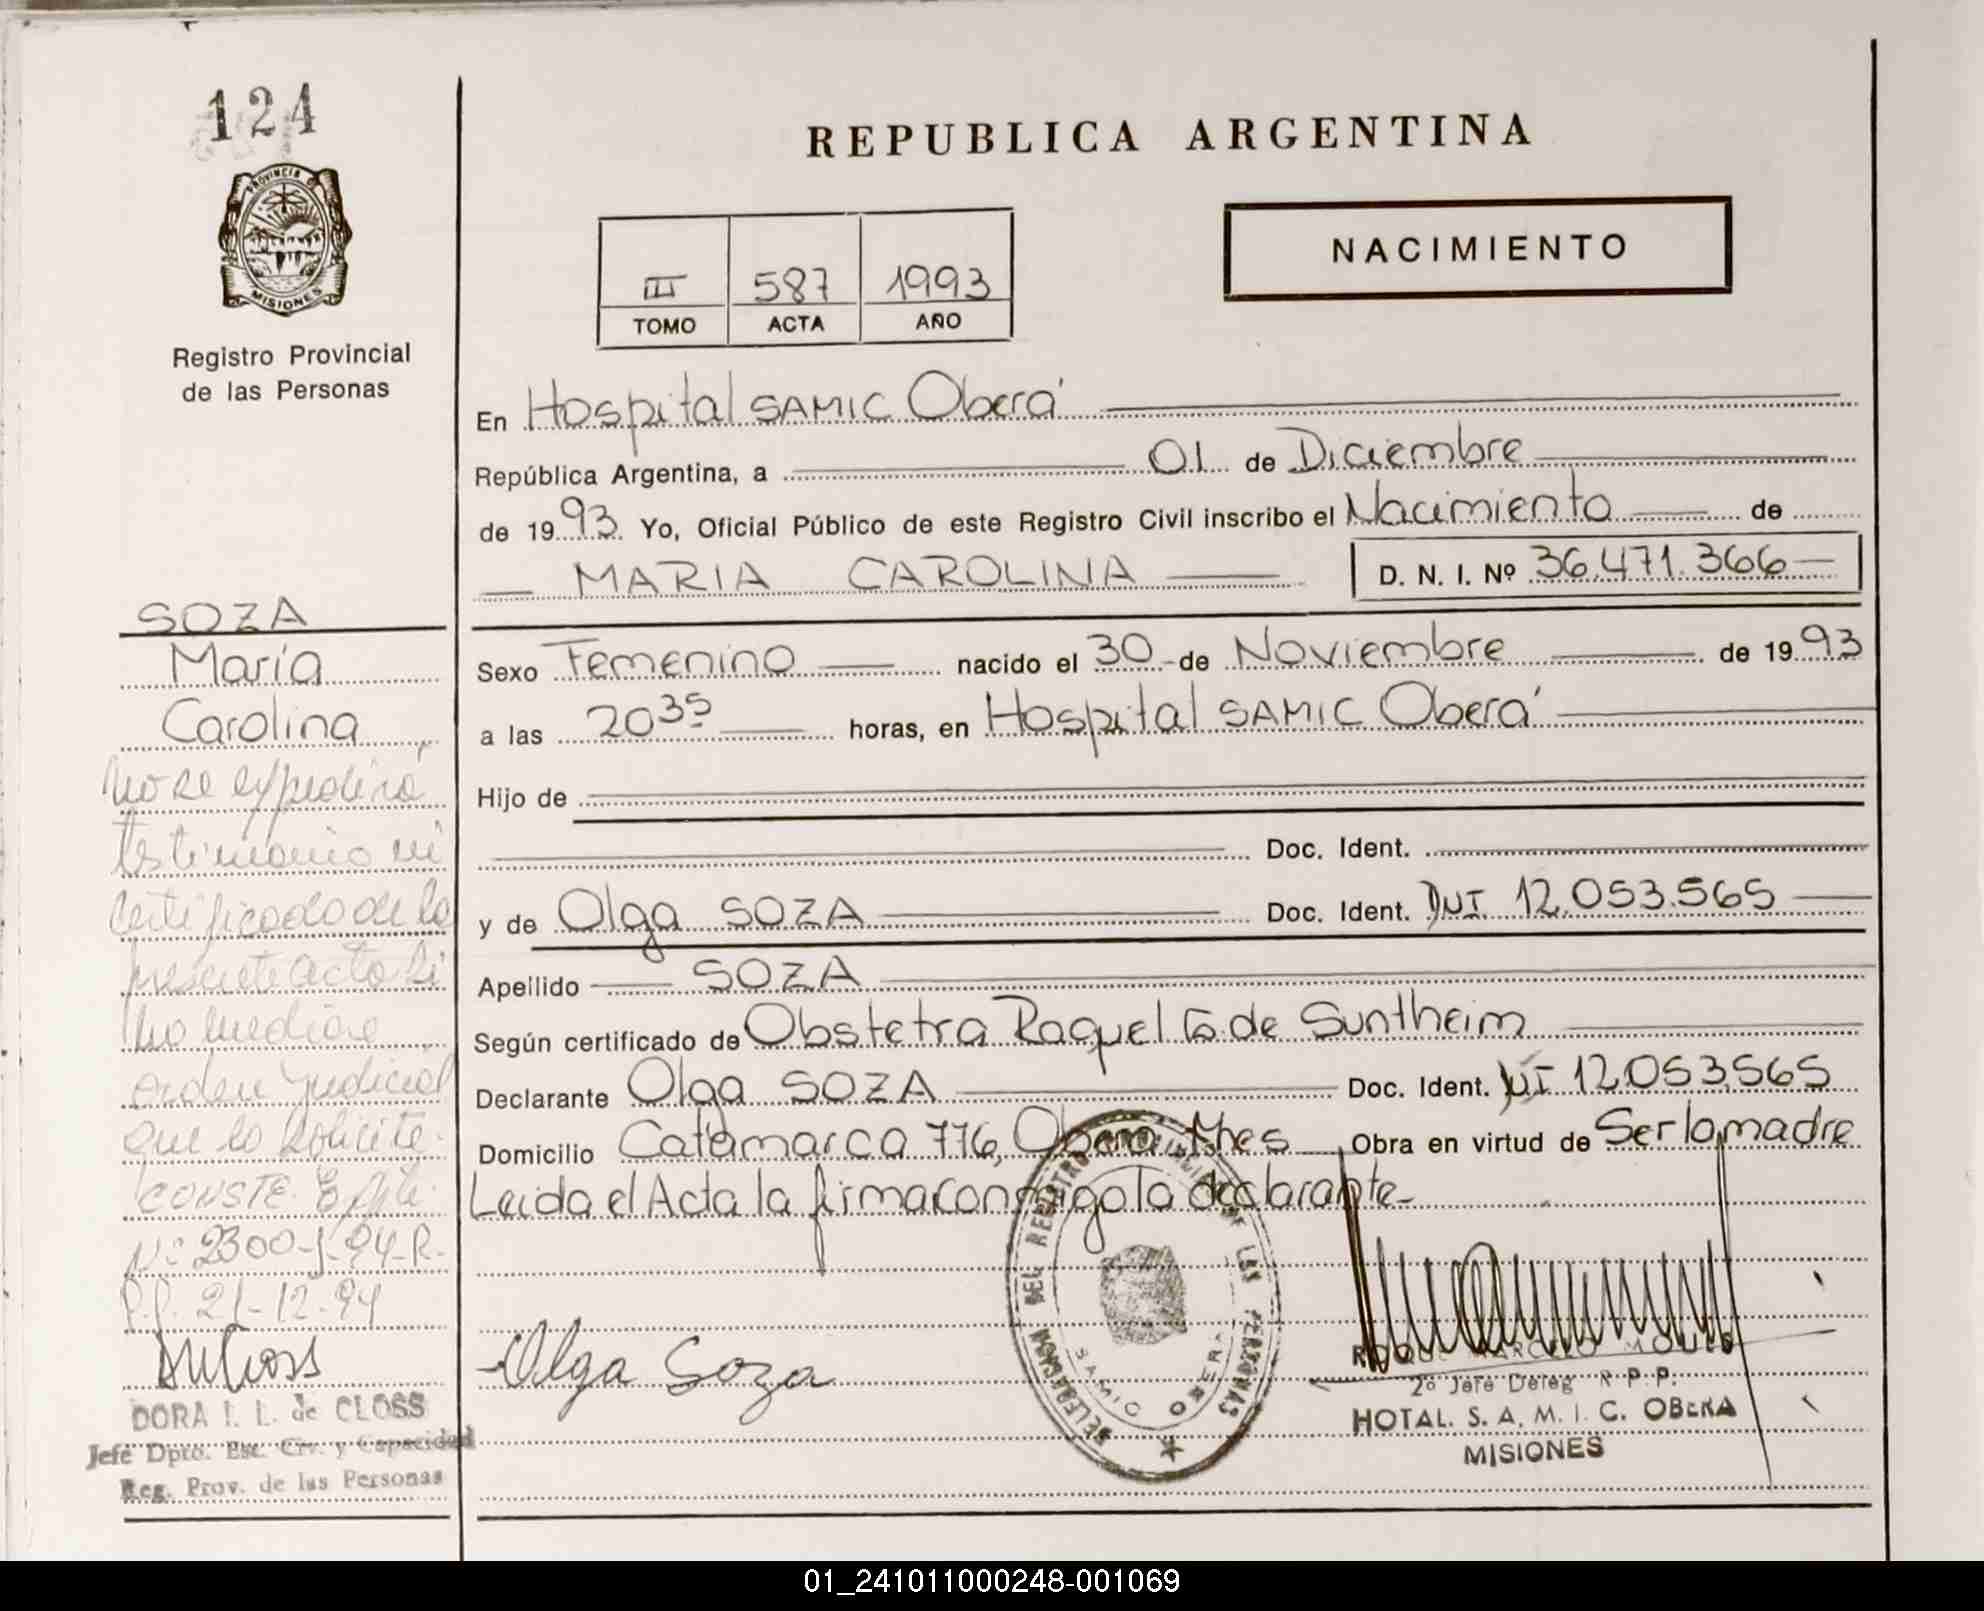 124
PROVINCIA DE
MISIONES
Registro Provincial
de las Personas
SOZA
María
Carolina
No se expedirá
testimonio ni
certificado de la
presente acta si
no mediare
orden judicial
que lo solicite.
CONSTE. Expte.
Nº 2300-J-94-R.
P.P. 21-12-94
DORA I. L. de CLOSS
Jefe Dpto. Est. Civ. y Capacidad
Reg. Prov. de las Personas
REPUBLICA ARGENTINA
III 587 1993
TOMO ACTA AÑO
NACIMIENTO
En Hospital SAMIC Oberá
República Argentina, a 01 de Diciembre
de 1993 Yo, Oficial Público de este Registro Civil inscribo el Nacimiento de
MARIA CAROLINA D. N. I. Nº 36.471.366
Sexo Femenino nacido el 30 de Noviembre de 1993
a las 20 35 horas, en Hospital SAMIC Oberá
Hijo de
Doc. Ident.
y de Olga SOZA Doc. Ident. DNI 12.053.565
Apellido SOZA
Según certificado de Obstetra Raquel G. de Suntheim
Declarante Olga SOZA Doc. Ident. DNI 12.053.565
Domicilio Catamarca 776, Oberá Mnes Obra en virtud de Ser la madre
Leida el Acta la firma conmigo la declarante-
Olga Soza
DELEGACION DEL REGISTRO DE LAS PERSONAS
SAMIC OBERA
2º Jefe Deleg R.P.P.
HOTAL. S. A. M. I. C. OBERA
MISIONES
01_241011000248-001069